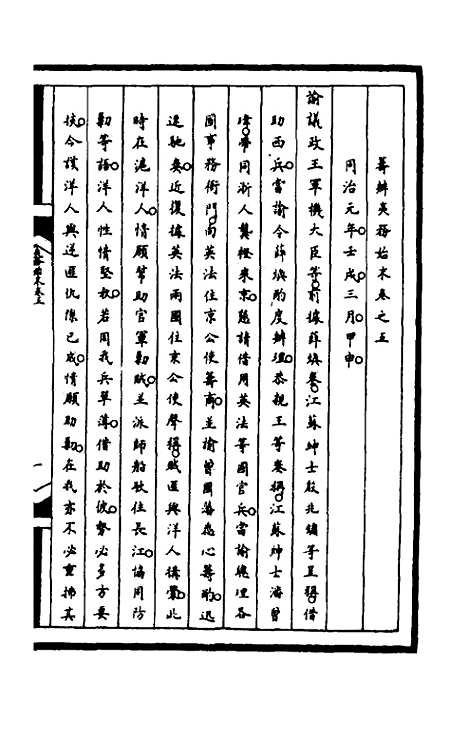 籌辦夷務始末卷之五
同治元年壬戌三月甲申
諭議政王軍機大臣等前據薛煥奏江蘇紳士殷兆鏞等呈稱借
助西兵當諭令薛煥酌度辦理恭親王等奏稱江蘇紳士潘曾
瑋帶同浙人龔橙來京懇請借用英法等國官兵當諭總理各
國事務衙門向英法住京公使籌商並諭曾國藩悉心籌酌迅
速馳奏近復據英法兩國住京公使聲稱賊匪與洋人構釁此
時在滬洋人情願幫助官軍勦賊並派師船駛往長江協同防
勦等語洋人性情堅執若用我兵單薄借助於彼勢必多方要
挾今該洋人與逆匪仇隙已成情願助勦在我亦不必重拂其